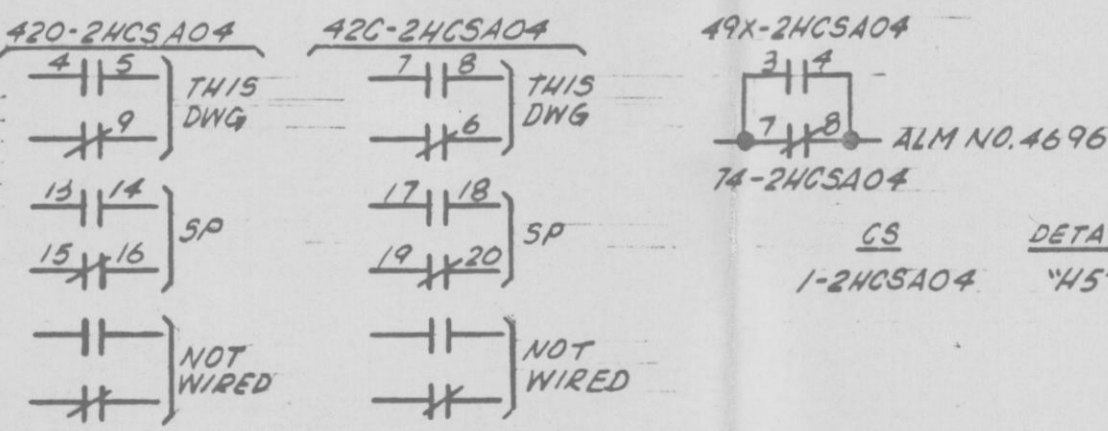 420-2HCSA04
4 5
THIS
DWG
9
13 14
SP
15 16
NOT
WIRED
42C-2HCSA04
7 8
THIS
DWG
6
17 18
SP
19 20
NOT
WIRED
49X-2HCSA04
3 4
7 8
ALM NO. 4696
74-2HCSA04
CS
1-2HCSA04
DETA
"H5"